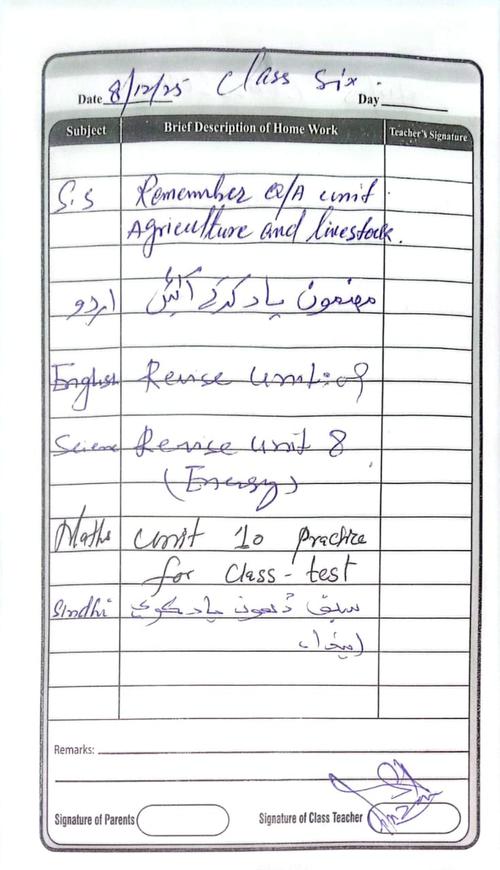 Date 8/12/25 Class Six. Day
Subject Brief Description of Home Work Teacher's Signature
S.S Remember Q/A unit
Agriculture and livestock.
اردو مضمون یاد کرکے آئیں
English Revise Unit: 9
Science Revise Unit 8
(Energy)
Maths Unit 10 Practice
for Class-test
Sindhi سبق ڏھون ياد ڪري
Remarks:
Signature of Parents Signature of Class Teacher